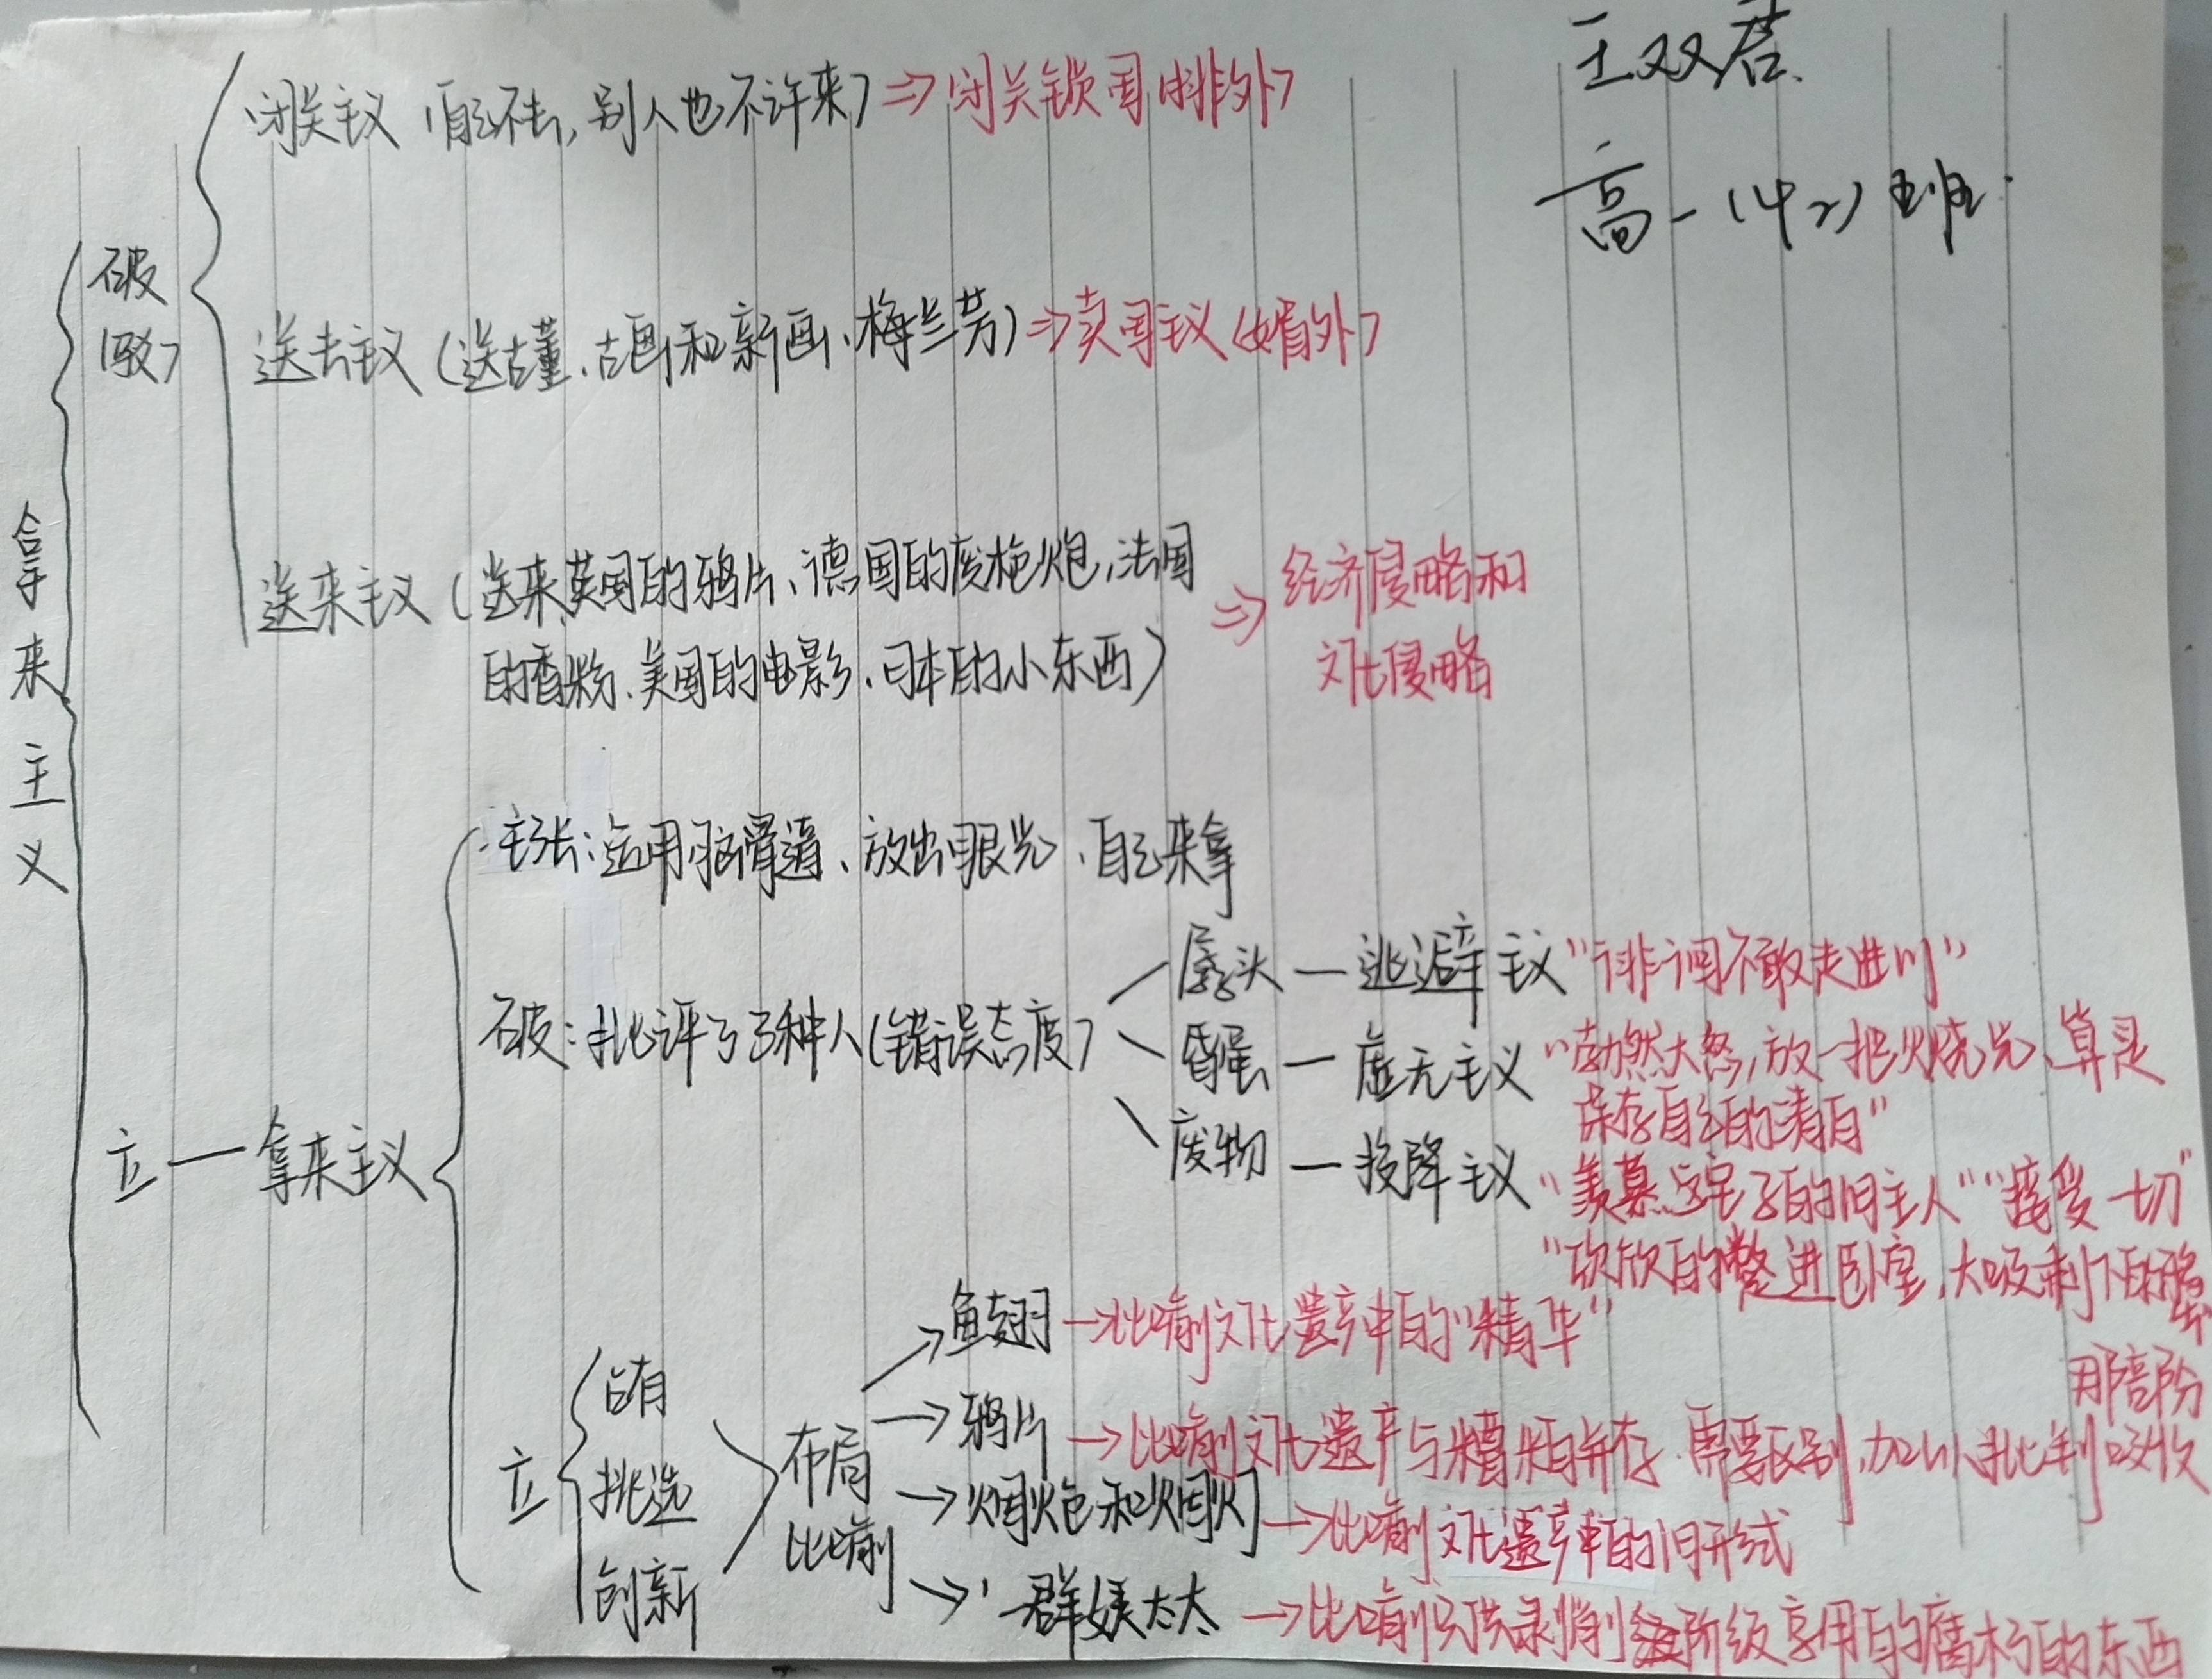 王双君
高一(42)班
拿来主义
破
(驳)
闭关主义(自己不去,别人也不许来)⇒闭关锁国(排外)
送去主义(送古董、古画和新画、梅兰芳)⇒卖国主义(媚外)
送来主义(送来英国的鸦片、德国的废枪炮,法国
的香粉、美国的电影、日本的小东西)
⇒经济侵略和
文化侵略
立—拿来主义
主张:运用脑髓、放出眼光、自己来拿
破:批评了3种人(错误态度)
孱头—逃避主义“徘徊不敢走进门”
昏蛋—虚无主义“勃然大怒,放一把火烧光、算是
保存自己的清白”
废物—投降主义“羡慕这宅子的旧主人”“接受一切”
“欣欣的蹩进卧室,大吸剩下的鸦片
那部份
立
占有
挑选
创新
布局
比喻
→鱼翅→比喻文化遗产中的“精华”
→鸦片→比喻文化遗产与糟粕并存、需要区别,加以批判吸收
→烟枪和烟灯→比喻文化遗产中的旧形式
→一群姨太太→比喻只供剥削阶级享用的腐朽的东西